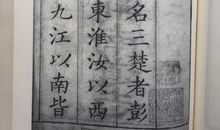 名三楚者彭
東淮汝以西
九江以南皆